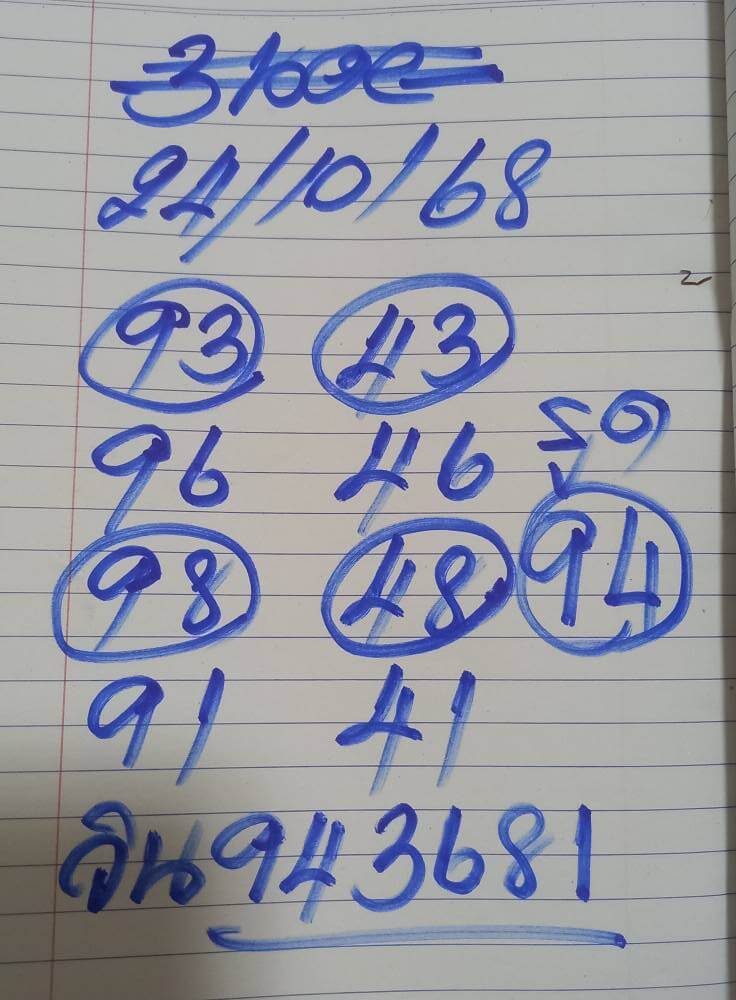 24/10/68
93 43
96 46 รูด
98 48 94
91 41
วิน943681